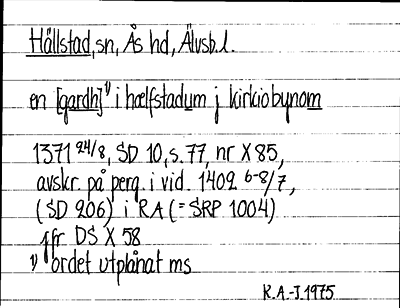 Hällstad, sn, Ås hd, Älvsb.l.
en [gardh]¹⁾ i hælfstadum j kirkiobynom
1371 24/8, SD 10, s. 77, nr X 85,
avskr. på perg. i vid. 1402 6-8/7,
(SD 206) i RA (= SRP 1004)
jfr DS X 58
¹⁾ ordet utplånat ms
R.A.-J. 1975